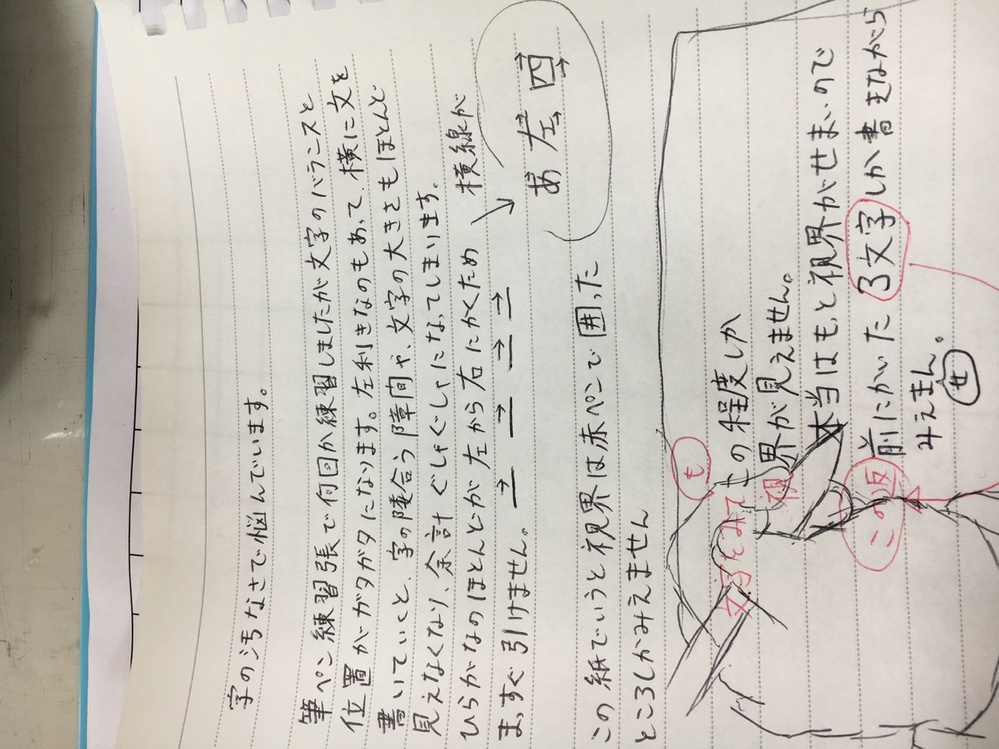 字の汚なさで悩んでいます。
筆ペン練習張で何回か練習しましたが文字のバランスと
位置がガタガタになります。左利きなのもあって、横に文を
書いていくと、字の隣合う障間や、文字の大きさもほとんど
見えなくなり、余計ぐしゃぐしゃになってしまります。
ひらがなのほとんどが左から右にかくため 横線が
まっすぐ引けません。 → → → →
あ 左 四
この紙でいうと視界は赤ペンで囲った
ところしかみえません
も
文字をみて この程度しか
視界が見えません。
本当はもっと視界がせまいので
この辺 前にかいた3文字しか書きながら
みえまん。
せ